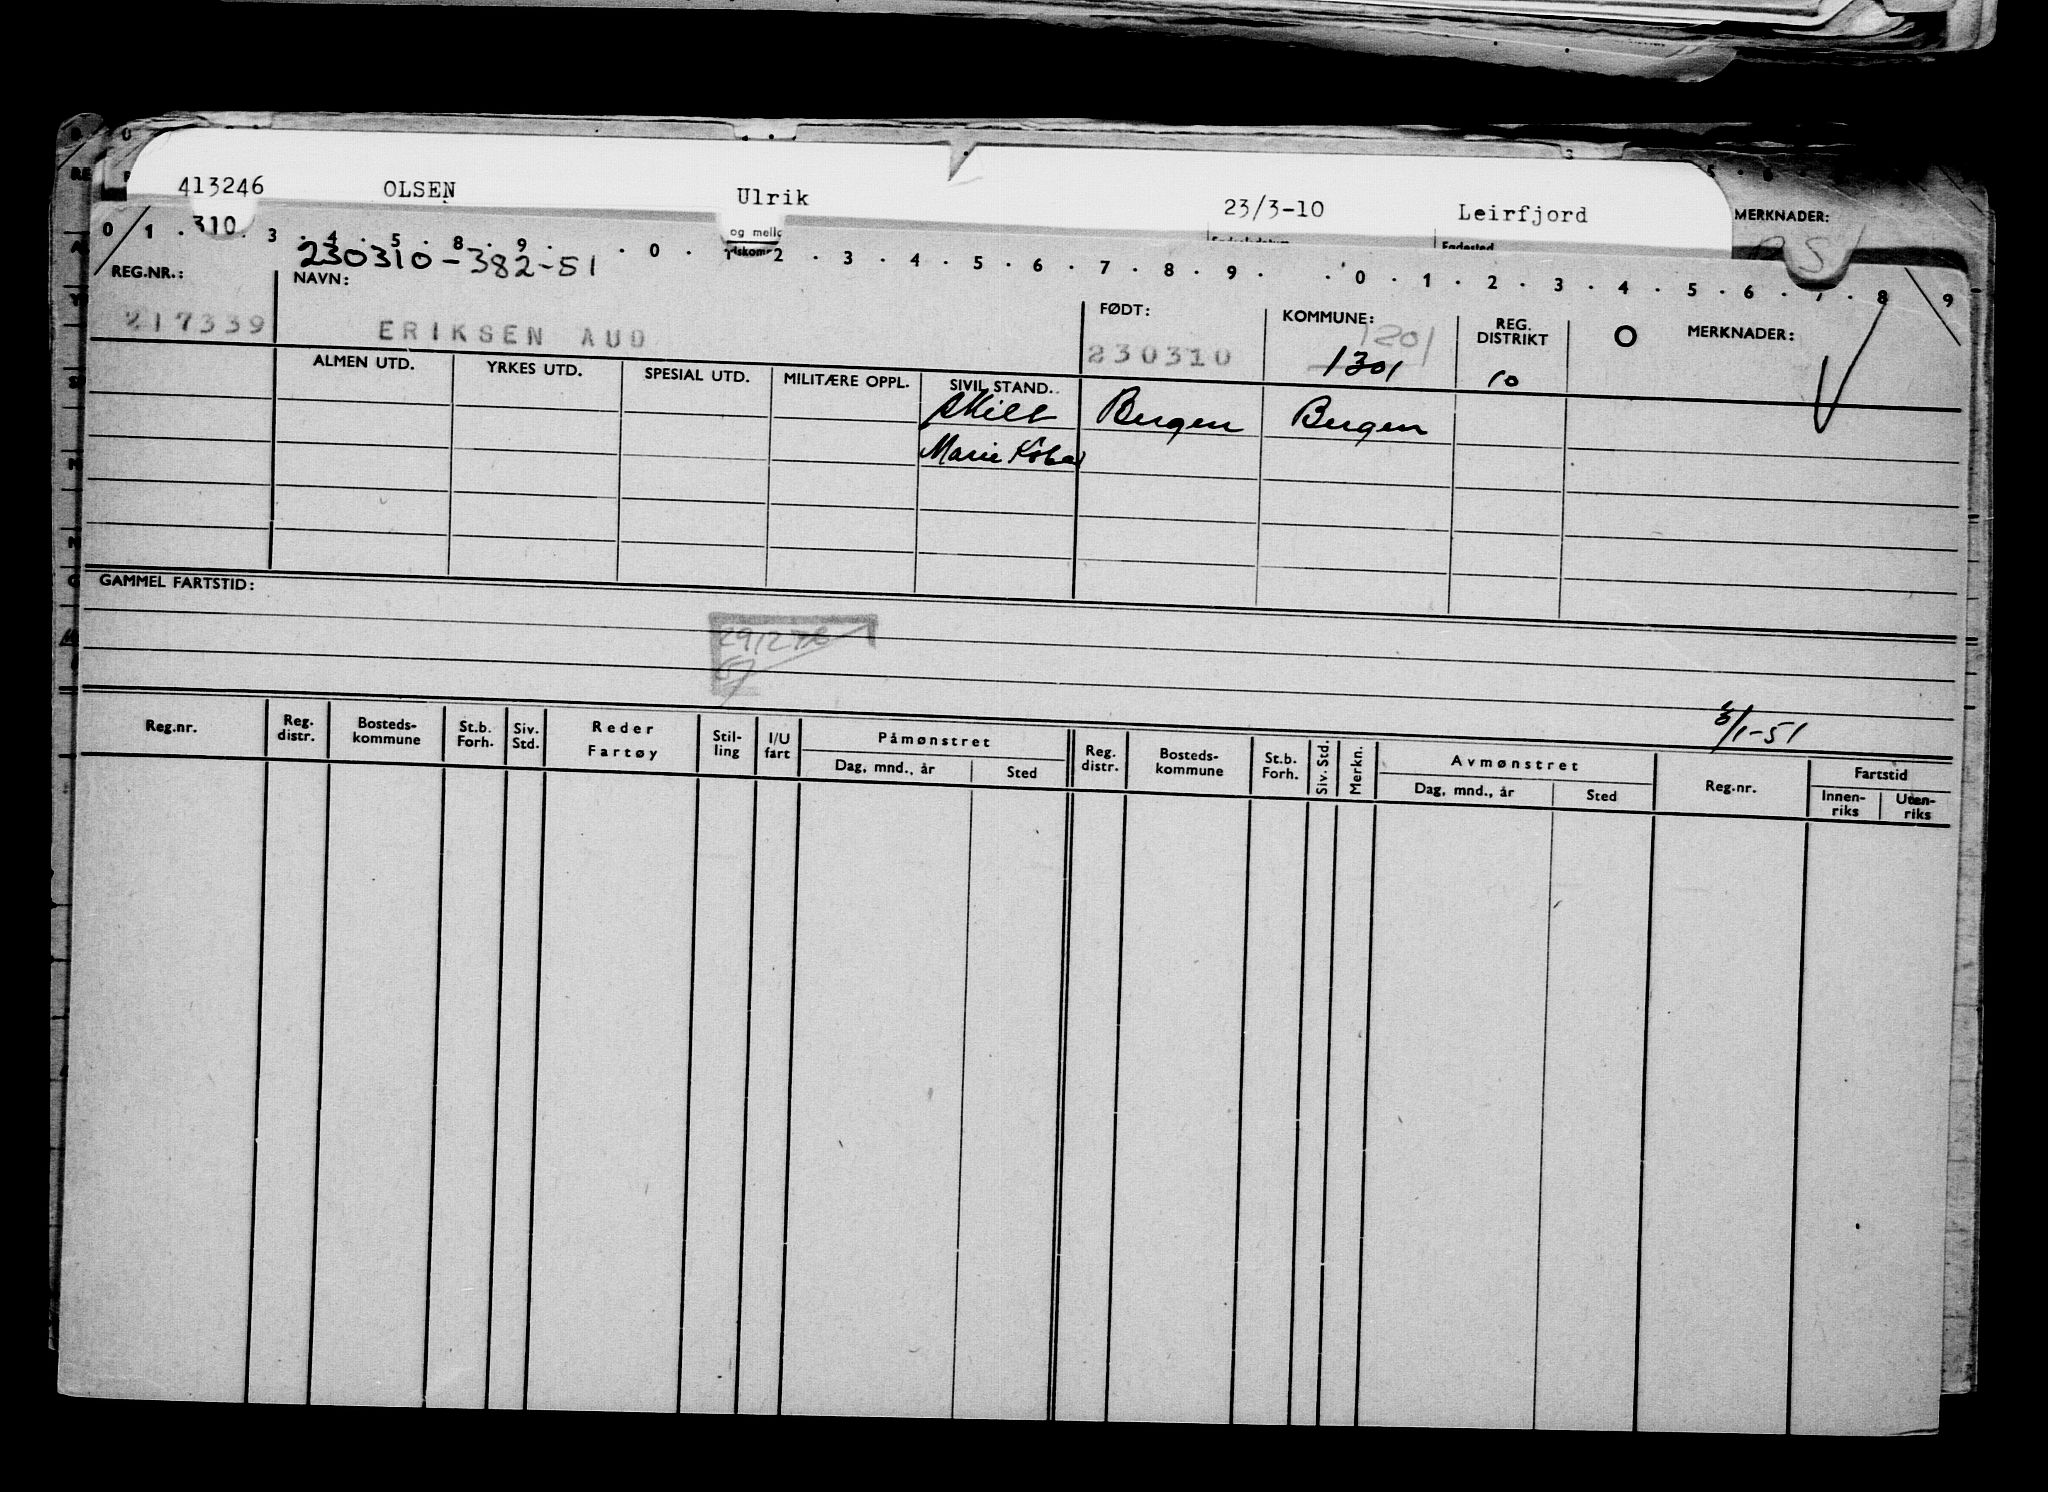 413246 OLSEN Ulrik 23/3-10 Leirfjord
MERKNADER:
310
og mello
0 1 . 3 . 4 . 5 . 8 . 9 . . 0 . 1 . 2 . 3 . 4 . 5 . 6 . 7 . 8 . 9 . . 0 . 1 . 2 . 3 . 4 . 5 . 6 . 7 . 8 9
230310-382-51
REG.NR.: NAVN: FØDT: KOMMUNE: REG. DISTRIKT O MERKNADER:
217339 ERIKSEN AUD 230310 1201
1301 10
ALMEN UTD. YRKES UTD. SPESIAL UTD. MILITÆRE OPPL. SIVIL STAND.
skilt Bergen Bergen
Marie
GAMMEL FARTSTID:
/1-51
Reg.nr. Reg. distr. Bosteds-kommune St.b. Forh. Siv. Std. Reder Fartøy Stil-ling I/U fart Påmønstret Reg. distr. Bosteds-kommune St.b. Forh. Siv. Std. Merkn. Avmønstret Reg.nr. Fartstid
Dag, mnd., år Sted Dag, mnd., år Sted Innen-riks Uten-riks